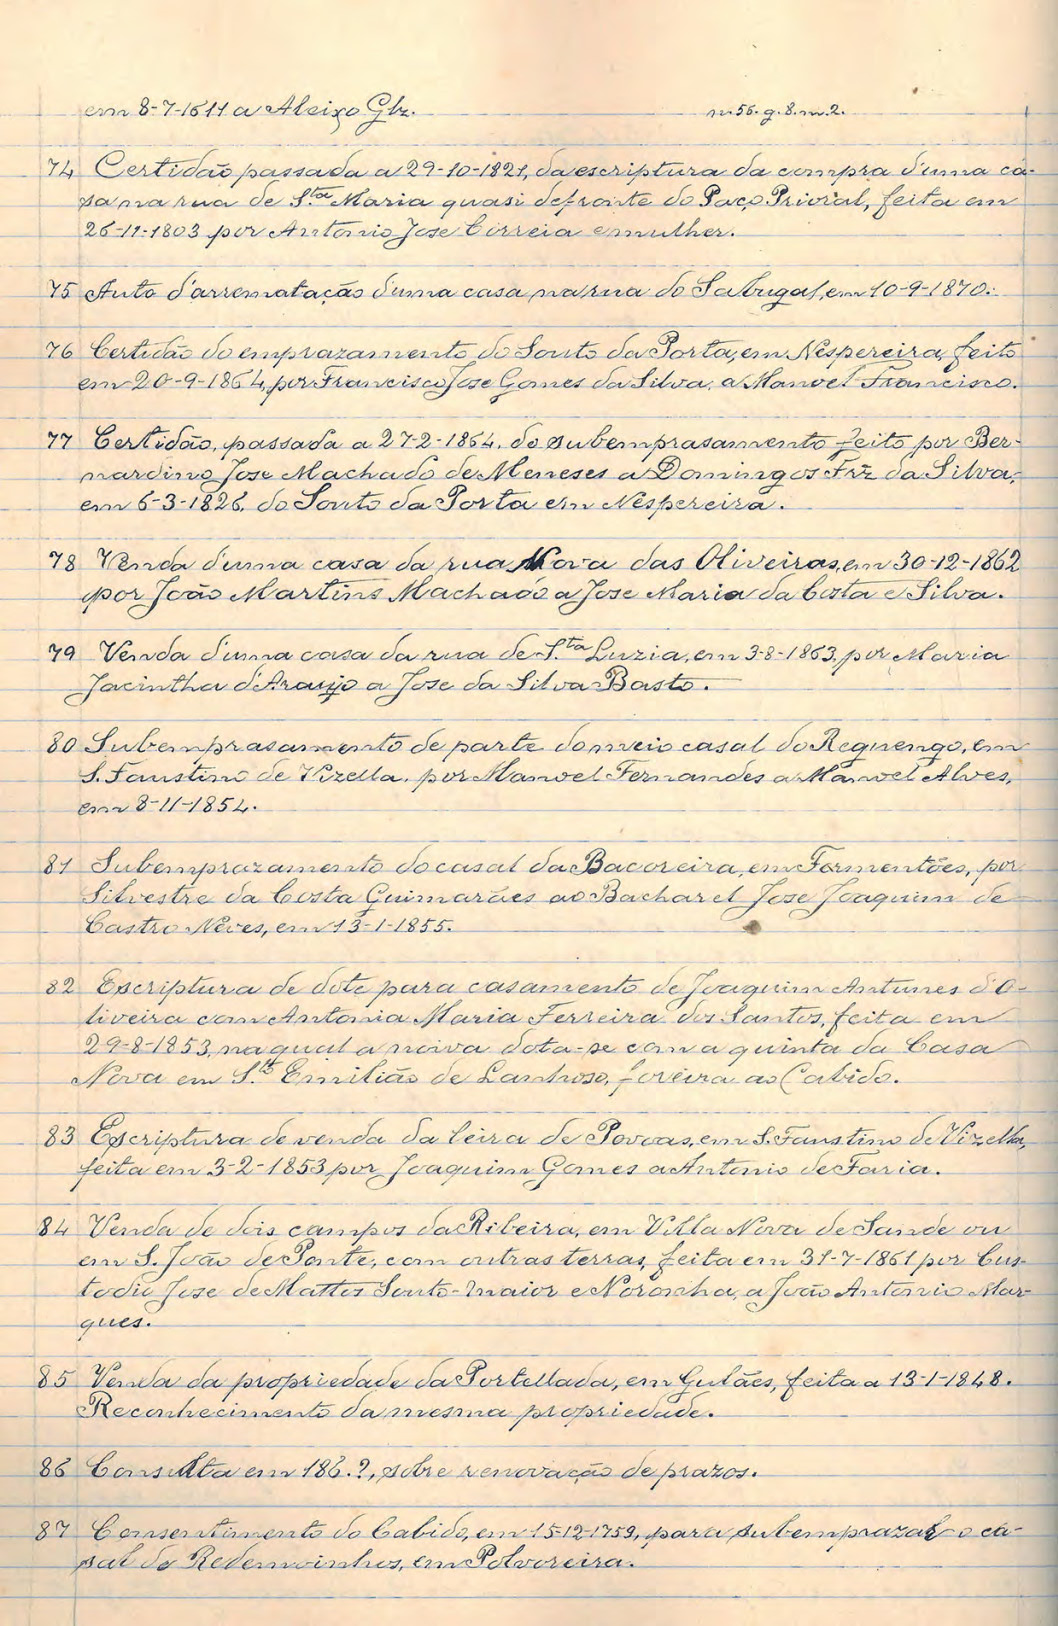 em 8-7-1611 a Aleixo Glz. n. 56. g. 8. m. 2.
74 Certidão passada a 29-10-1821, da escriptura da compra d'uma ca-
sa na rua de S.ta Maria quasi defronte do Paço Prioral, feita em
26-11-1803 por Antonio Jose Correia e mulher.
75 Auto d'arrematação d'uma casa na rua do Sabugal, em 10-9-1870.
76 Certidão do emprazamento do Souto da Porta, em Nespereira, feito
em 20-9-1864, por Francisco Jose Gomes da Silva, a Manoel Francisco.
77 Certidão, passada a 27-2-1864, do subemprasamento feito por Ber-
nardino Jose Machado de Meneses a Domingos Frz da Silva,
em 6-3-1826, do Souto da Porta em Nespereira.
78 Venda d'uma casa da rua Nova das Oliveiras, em 30-12-1862
por João Martins Machado a Jose Maria da Costa e Silva.
79 Venda d'uma casa da rua de S.ta Luzia, em 3-8-1863, por Maria
Jacintha d'Araujo a Jose da Silva Basto.
80 Subemprasamento de parte do meio casal do Reguengo, em
S. Faustino de Vizella, por Manoel Fernandes a Manoel Alves,
em 8-11-1854.
81 Subemprazamento do casal da Bacoreira, em Formentões, por
Silvestre da Costa Guimarães ao Bacharel Jose Joaquim de
Castro Neves, em 13-1-1855.
82 Escriptura de dote para casamento de Joaquim Antunes d'O-
liveira com Antonia Maria Ferreira dos Santos, feita em
29-8-1853, na qual a noiva dota-se com a quinta da Casa
Nova em S.to Emilião de Lanhoso, foreira ao Cabido.
83 Escriptura de venda da leira de Povoas, em S. Faustino de Vizella,
feita em 3-2-1853 por Joaquim Gomes a Antonio de Faria.
84 Venda de dois campos da Ribeira, em Villa Nova de Sande ou
em S. João de Ponte, com outras terras, feita em 31-7-1861 por Cus-
todio Jose de Mattos Souto-maior e Noronha, a João Antonio Mar-
ques.
85 Venda da propriedade da Portellada, em Gulães, feita a 13-1-1848.
Reconhecimento da mesma propriedade.
86 Consulta em 186.?, sobre renovação de prazos.
87 Consentimento do Cabido, em 15-12-1759, para subemprazar o ca-
sal de Redemoinhos, em Polvoreira.